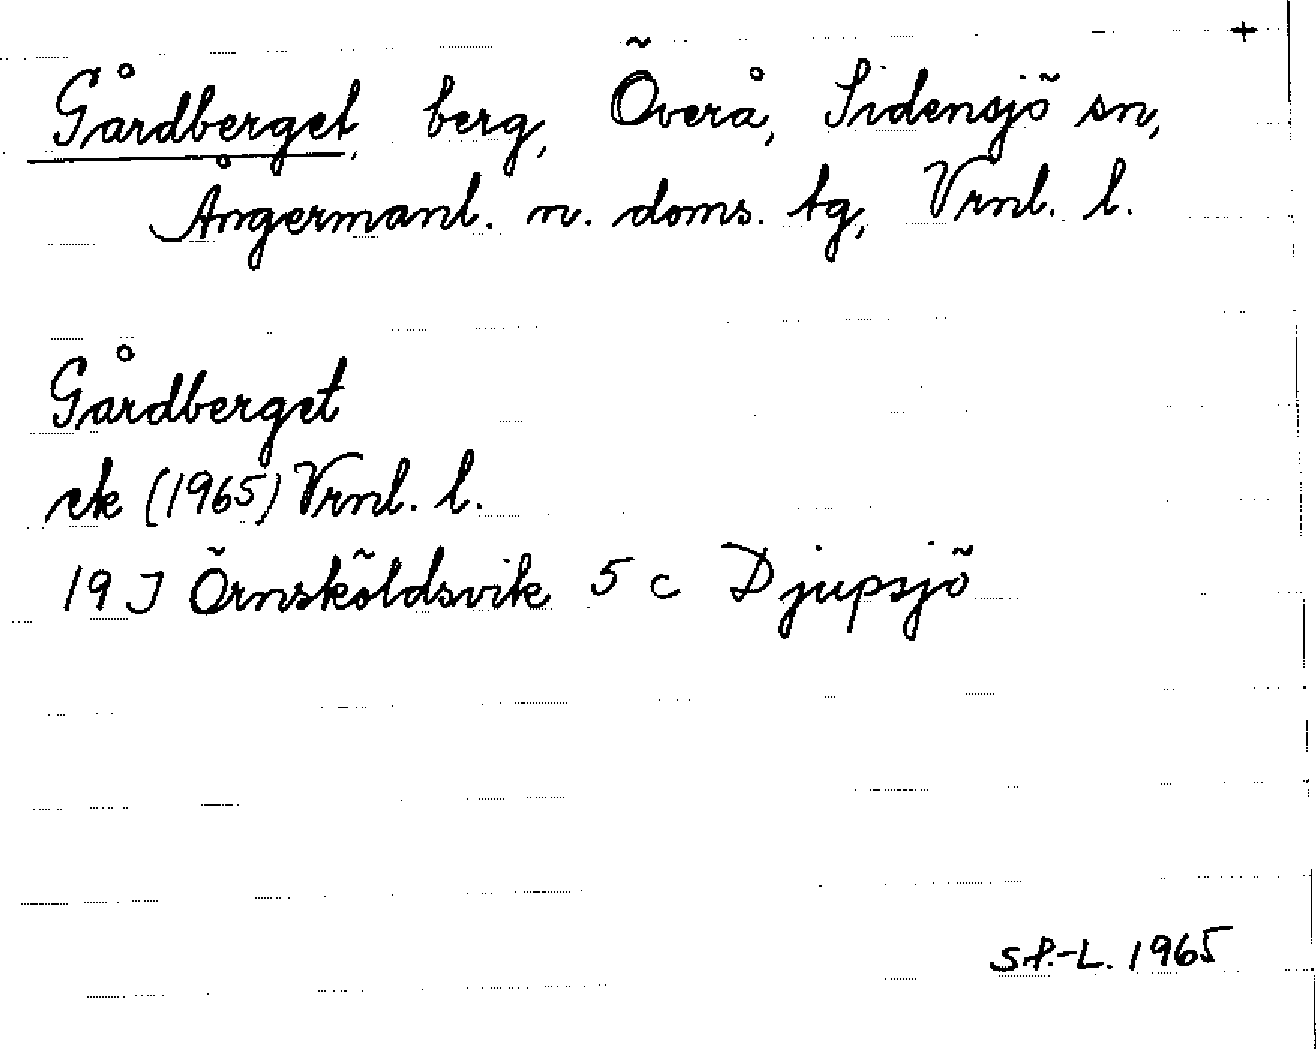 +
Gårdberget, berg, Överå, Sidensjö sn,
Ångermanl. n. doms. tg, Vrnl. l.
Gårdberget
ek (1965) Vrnl. l.
19 J Örnsköldsvik 5 c Djupsjö
S.P.-L. 1965